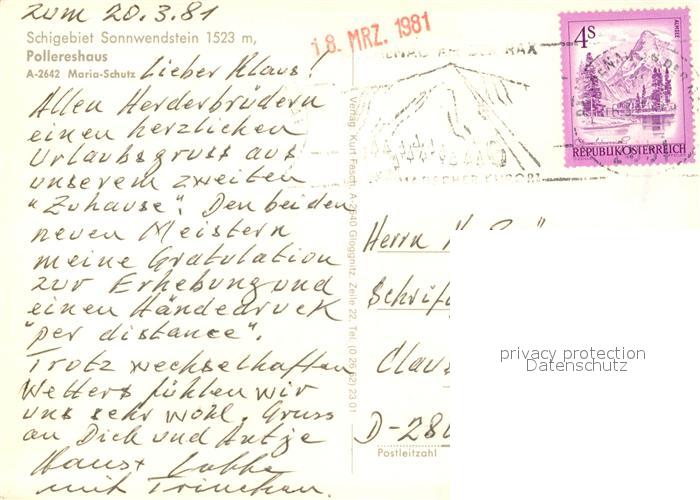 zum 20.3.81
Schigebiet Sonnwendstein 1523 m,
Pollereshaus
A-2642 Maria-Schutz
Lieber Klaus!
Allen Herderbrüdern
einen herzlichen
Urlaubsgruss aus
unserem zweiten
"Zuhause". Den beiden
neuen Meistern
meine Gratulation
zur Erhebung und
einen Händedruck
"per distance".
Trotz wechselhaften
Wetters fühlen wir
uns sehr wohl. Gruss
an Dich und Antje
Hans +
mit Trinchen.
Verlag: Kurt Fasch, A-2640 Gloggnitz, Zeile 22, Tel. (0 26 62) 23 01
18. MRZ. 1981
AN DER RAX
4 S
ALMSEE
REPUBLIK ÖSTERREICH
Herrn
Schrif
Claus
D-280
Postleitzahl
privacy protection
Datenschutz